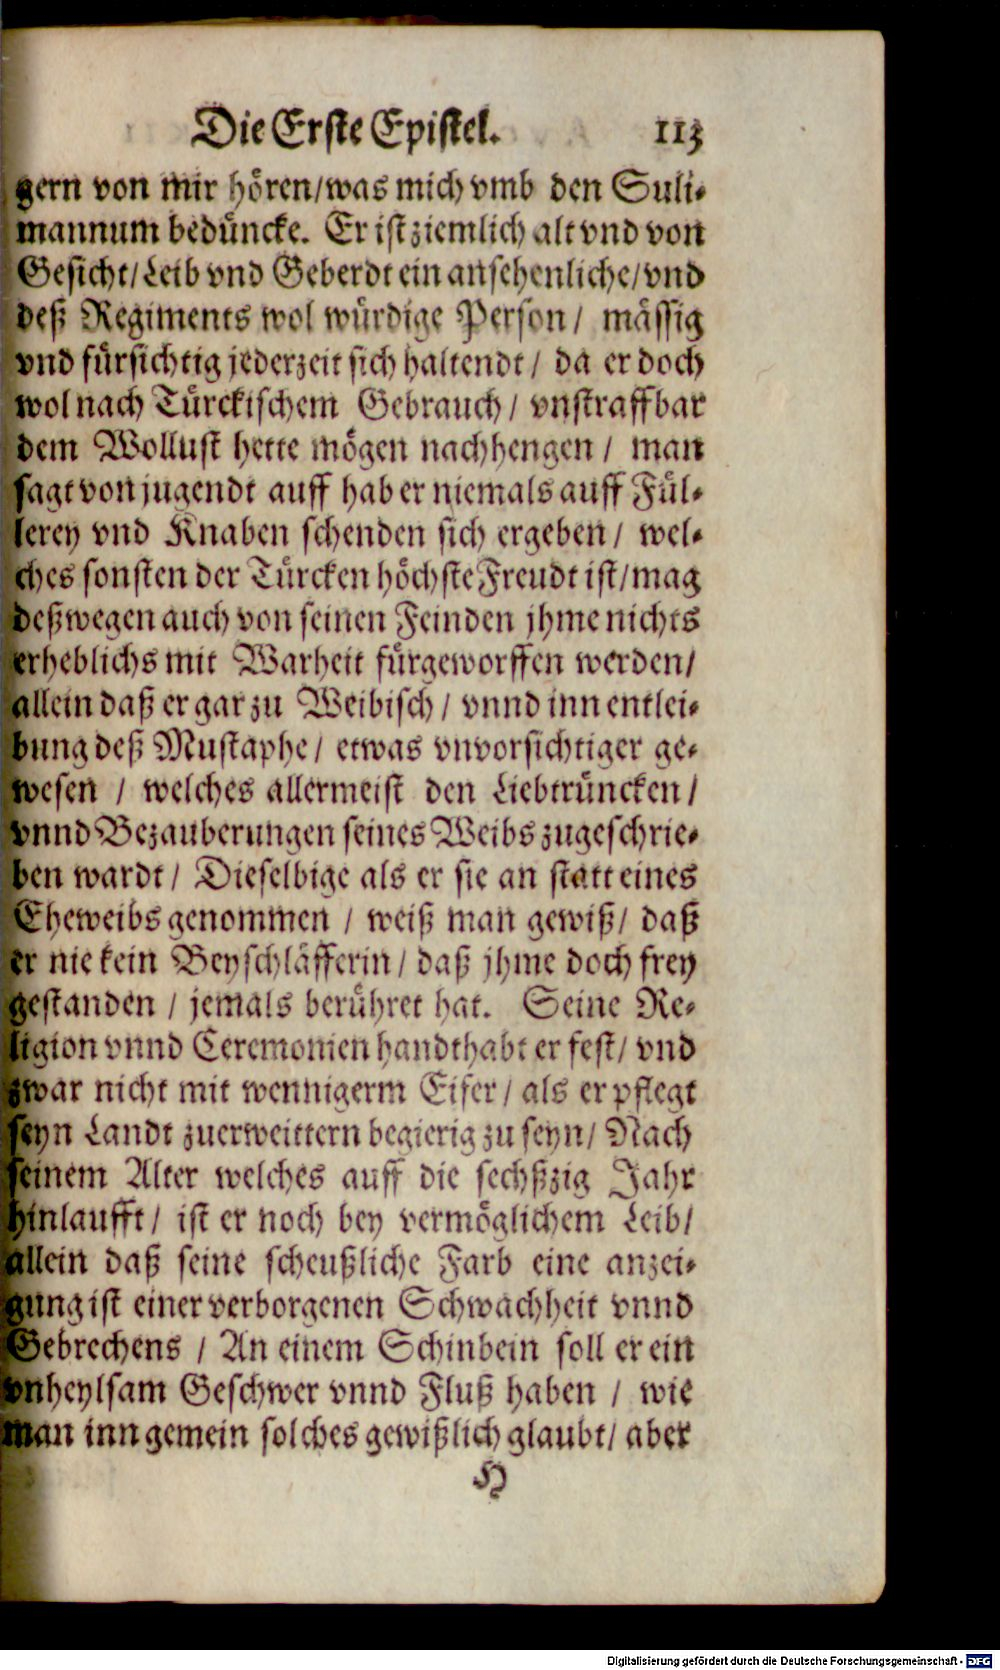 Die Erste Epistel. 113
gern von mir hören/was mich vmb den Suli-
mannum bedüncke. Er ist ziemlich alt vnd von
Gesicht/Leib vnd Geberdt ein ansehenliche/vnd
deß Regiments wol würdige Person/ mässig
vnd fürsichtig jederzeit sich haltendt/ da er doch
wol nach Türckischem Gebrauch/ vnstraffbar
dem Wollust hette mögen nachhengen/ man
sagt von jugendt auff hab er niemals auff Fül-
lerey vnd Knaben schenden sich ergeben/ wel-
ches sonsten der Türcken höchste Freudt ist/mag
deßwegen auch von seinen Feinden jhme nichts
erheblichs mit Warheit fürgeworffen werden/
allein daß er gar zu Weibisch/ vnnd inn entlei-
bung deß Mustaphe/ etwas vnvorsichtiger ge-
wesen / welches allermeist den Liebtrüncken/
vnnd Bezauberungen seines Weibs zugeschrie-
ben wardt/ Dieselbige als er sie an statt eines
Eheweibs genommen / weiß man gewiß/ daß
er nie kein Beyschläfferin/ daß jhme doch frey
gestanden / jemals berühret hat. Seine Re-
ligion vnnd Ceremonien handthabt er fest/ vnd
zwar nicht mit wennigerm Eifer/ als er pflegt
seyn Landt zuerweittern begierig zu seyn/ Nach
seinem Alter welches auff die sechßzig Jahr
hinlaufft/ ist er noch bey vermöglichem Leib/
allein daß seine scheußliche Farb eine anzei-
gung ist einer verborgenen Schwachheit vnnd
Gebrechens / An einem Schinbein soll er ein
vnheylsam Geschwer vnnd Fluß haben / wie
man inn gemein solches gewißlich glaubt/ aber
H
Digitalisierung gefördert durch die Deutsche Forschungsgemeinschaft - DFG